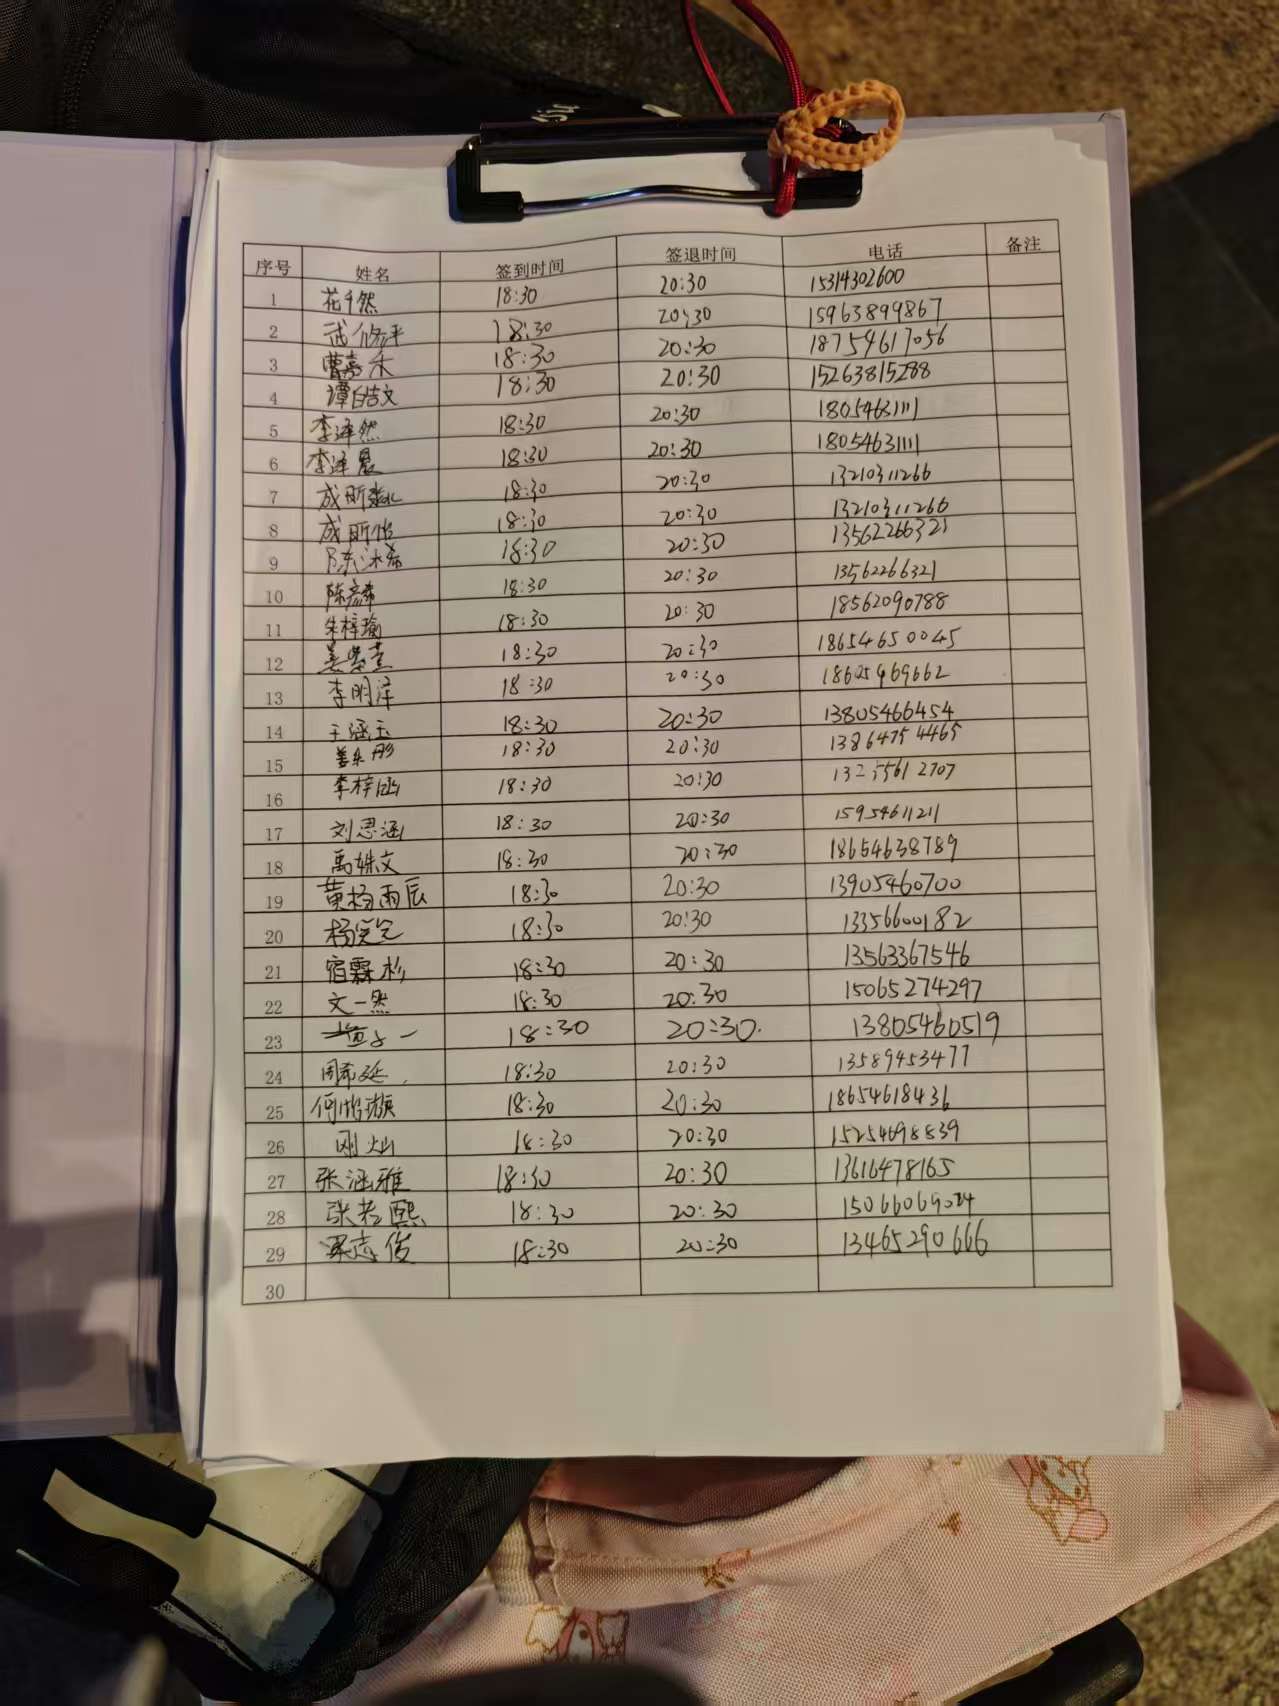 序号 姓名 签到时间 签退时间 电话 备注
1 花千然 18:30 20:30 15314302600
2 武修平 18:30 20:30 15963899867
3 曹嘉禾 18:30 20:30 18754617056
4 谭皓文 18:30 20:30 15263815288
5 李泽然 18:30 20:30 18054631111
6 李泽晨 18:30 20:30 18054631111
7 18:30 20:30 13210311266
8 成昕怡 18:30 20:30 13210311266
9 陈沐希 18:30 20:30 13562266321
10 陈彦希 18:30 20:30 13562266321
11 朱梓瑜 18:30 20:30 18562090788
12 18:30 20:30 18654650045
13 李明泽 18:30 20:30 18605469662
14 王涵玉 18:30 20:30 13805466454
15 姜乐彤 18:30 20:30 13864754465
16 李梓涵 18:30 20:30 13255612707
17 刘思涵 18:30 20:30 15954611211
18 禹姝文 18:30 20:30 18654638789
19 黄杨雨辰 18:30 20:30 13905460700
20 18:30 20:30 13356600182
21 宿霖杉 18:30 20:30 13563367546
22 文一然 18:30 20:30 15065274297
23 18:30 20:30. 13805460519
24 周希延 18:30 20:30 13589453477
25 何怡璇 18:30 20:30 18654618436
26 刚灿 18:30 20:30 15254698839
27 张涵雅 18:30 20:30 13616478165
28 张若熙 18:30 20:30
29 梁志俊 18:30 20:30 13465290666
30